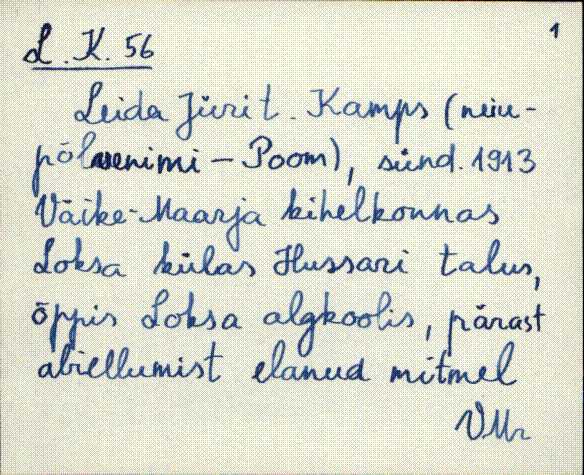 1
L. K. 56
Leida Jüri t. Kamps (neiu-
põlvenimi – Poom), sünd. 1913
Väike-Maarja kihelkonnas
Loksa külas Hussari talus,
õppis Loksa algkoolis, pärast
abiellumist elanud mitmel